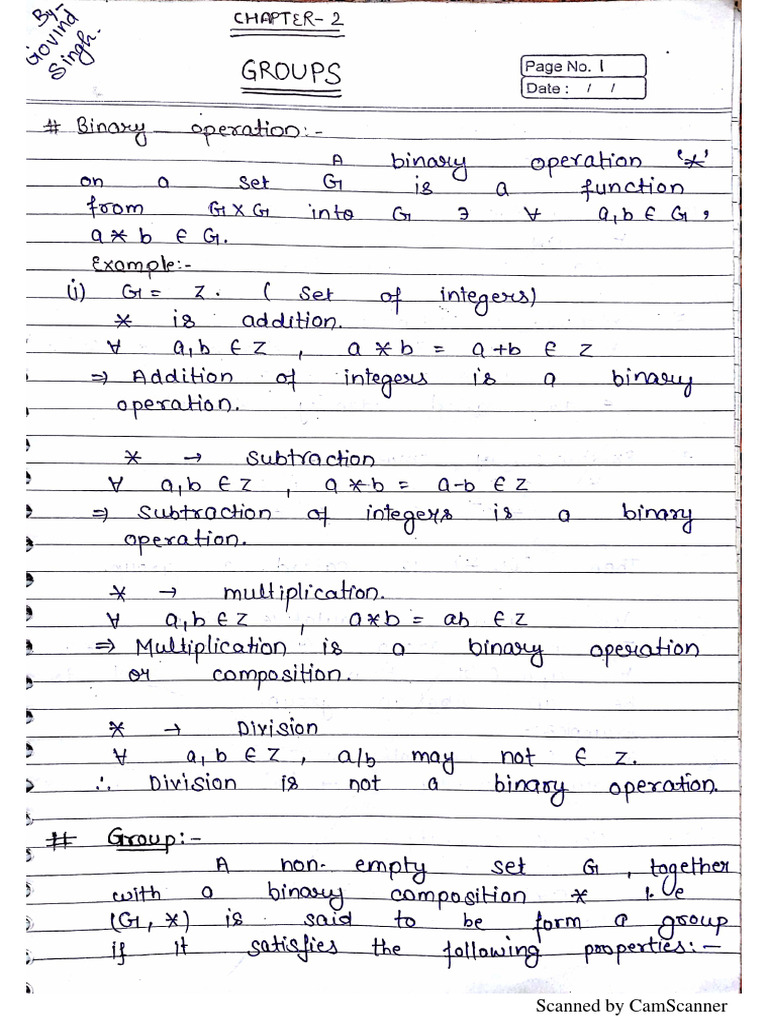 By- Govind Singh.
CHAPTER-2
GROUPS
Page No. 1
Date : / /
# Binary operation:-
A binary operation '*'
on a set G is a function
from G×G into G ∋ ∀ a,b ∈ G,
a * b ∈ G.
Example:-
(i) G = Z. ( Set of integers)
* is addition.
∀ a,b ∈ Z , a * b = a+b ∈ Z
⇒ Addition of integers is a binary
operation.
* → Subtraction
∀ a,b ∈ Z , a * b = a-b ∈ Z
⇒ Subtraction of integers is a binary
operation.
* → multiplication.
∀ a,b ∈ Z , a*b = ab ∈ Z
⇒ Multiplication is a binary operation
or composition.
* → Division
∀ a,b ∈ Z, a/b may not ∈ Z.
∴ Division is not a binary operation.
# Group:-
A non-empty set G, together
with a binary composition * i.e
(G, *) is said to be form a group
if it satisfies the following properties:-
Scanned by CamScanner